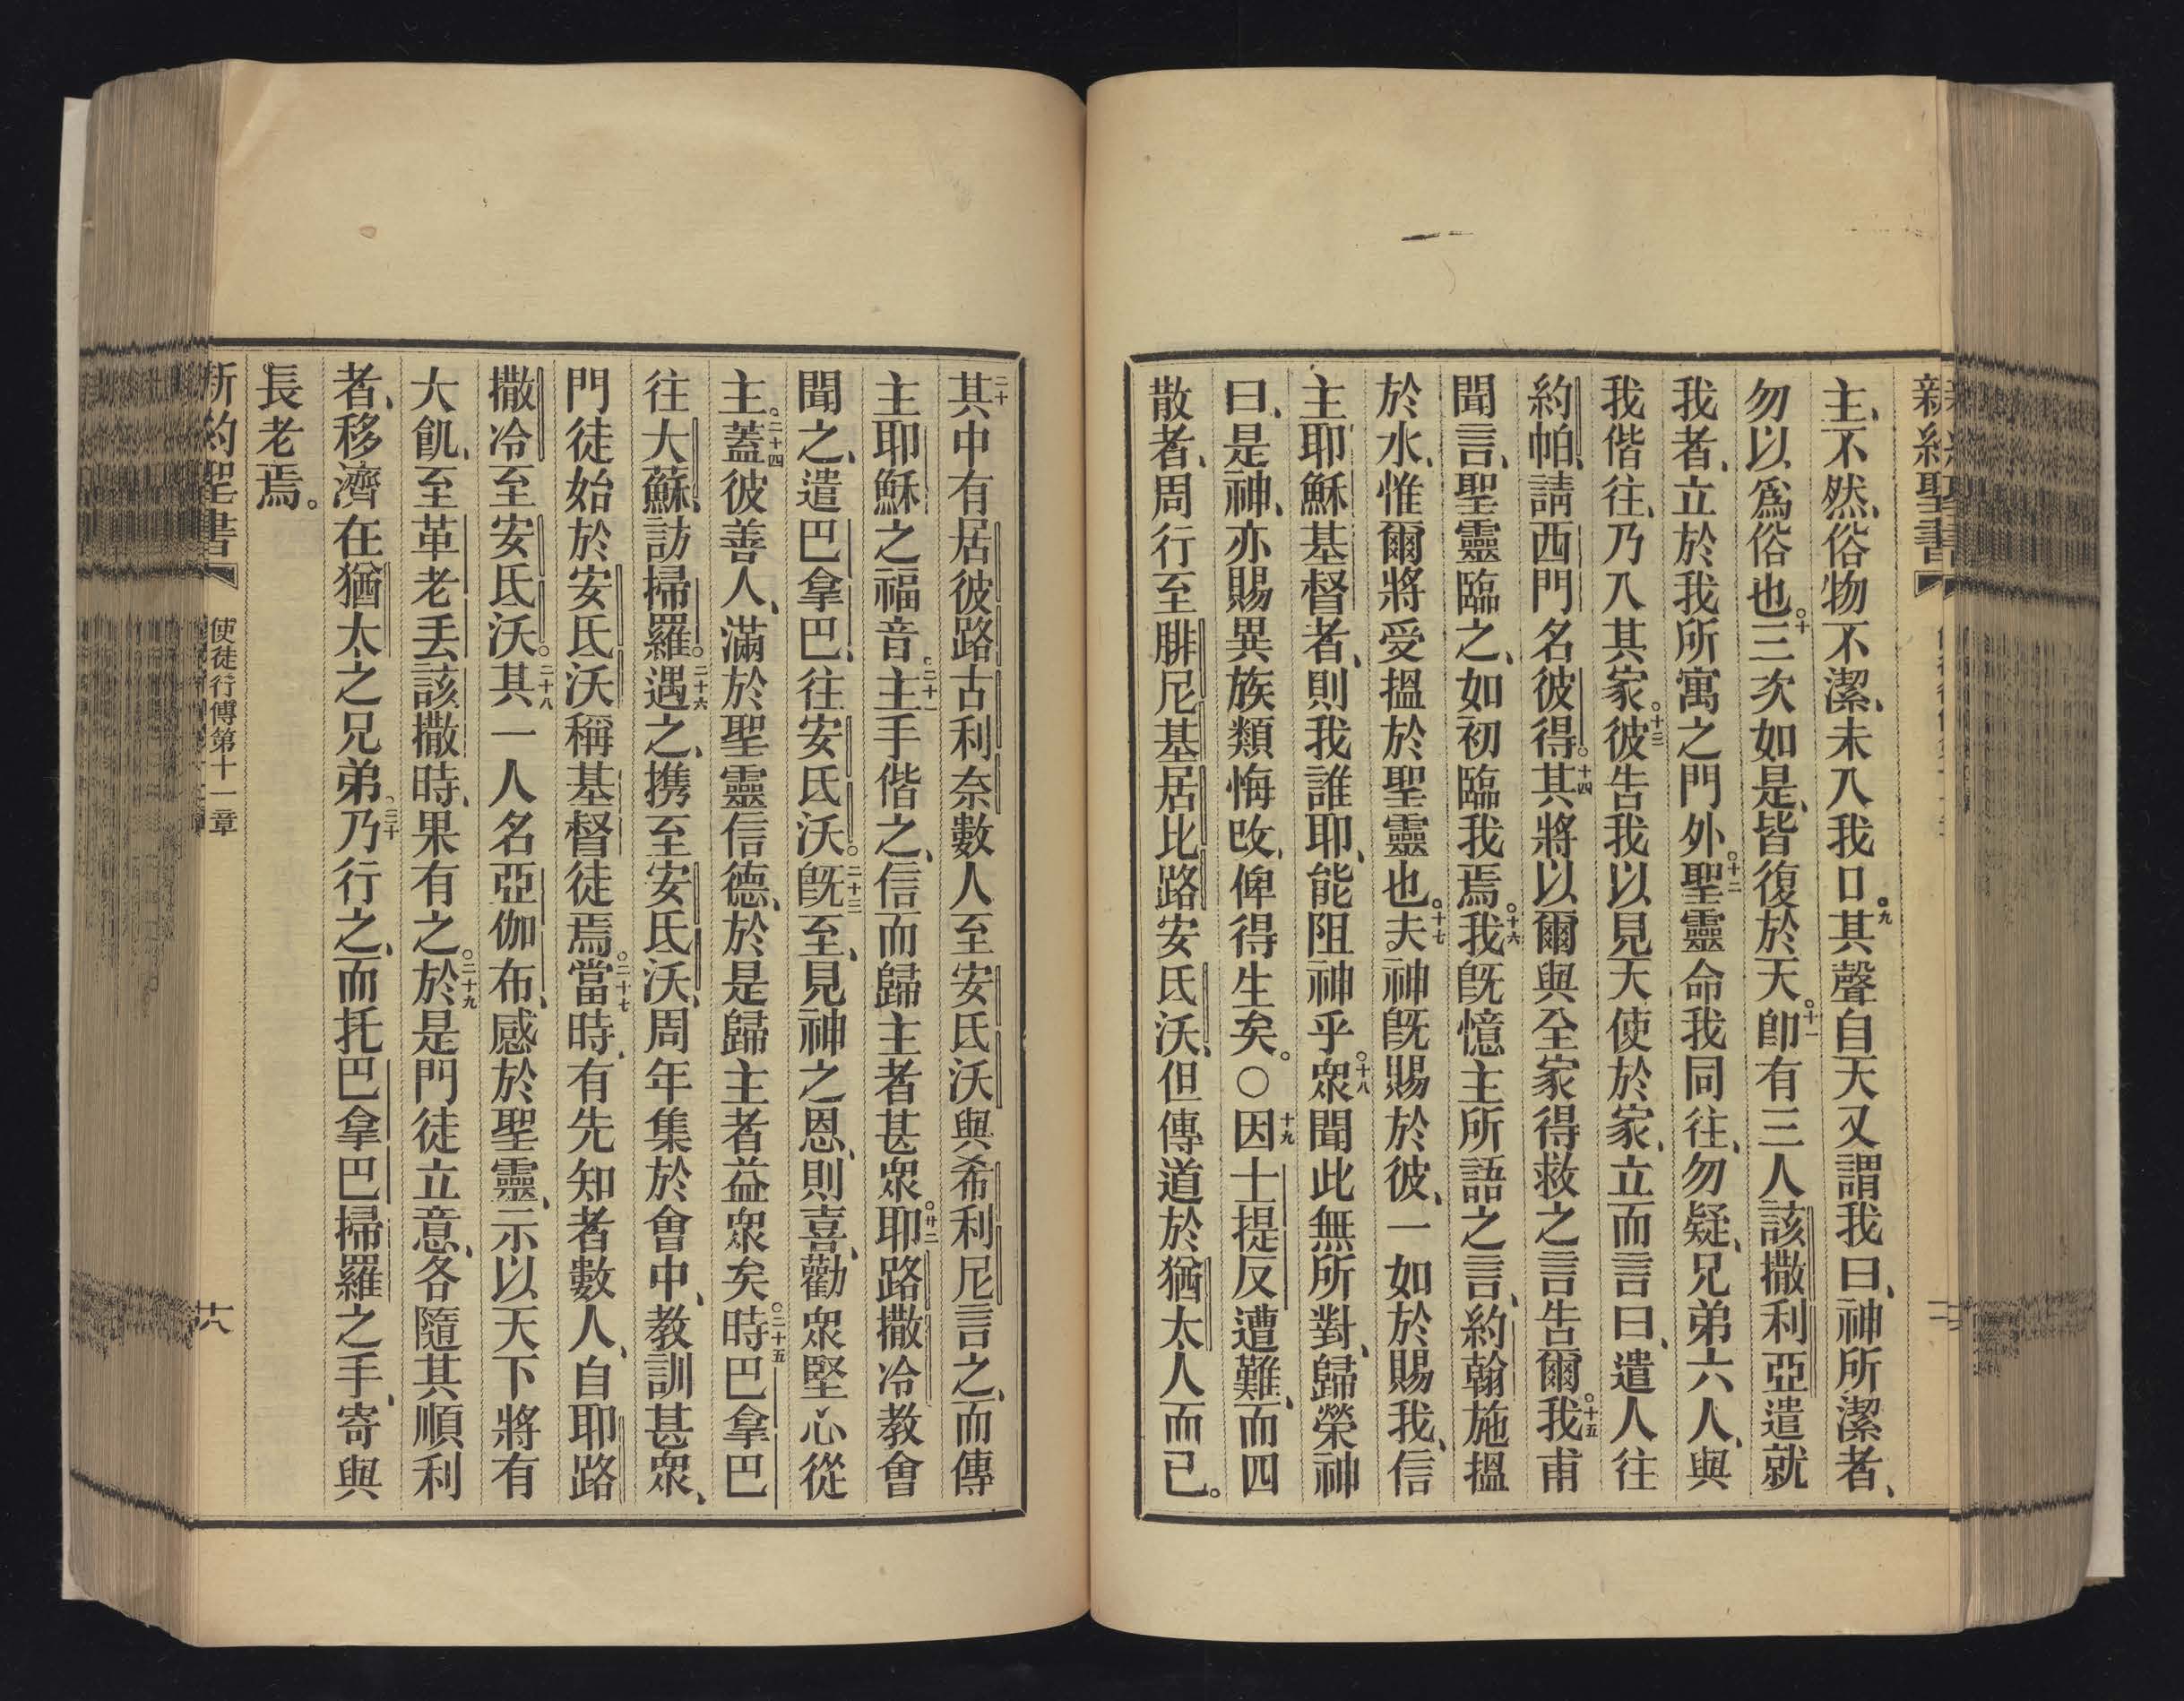 新約聖書
主、不然、俗物不潔、未入我口。九其聲自天又謂我曰、神所潔者、
勿以爲俗也。十三次如是、皆復於天。十一卽有三人該撒利亞遣就
我者、立於我所寓之門外。十二聖靈命我同往、勿疑、兄弟六人、與
我偕往、乃入其家。十三彼告我以見天使於家、立而言曰、遣人往
約帕、請西門名彼得。十四其將以爾與全家得救之言告爾。十五我甫
聞言、聖靈臨之、如初臨我焉。十六我旣憶主所語之言、約翰施搵
於水、惟爾將受搵於聖靈也。十七夫神旣賜於彼、一如於賜我、信
主耶穌基督者、則我誰耶、能阻神乎。十八衆聞此無所對、歸榮神
曰、是神、亦賜異族類悔改、俾得生矣。〇十九因士提反遭難、而四
散者、周行至腓尼基居比路安氐沃、但傳道於猶太人而已。
二十其中有居彼路古利奈數人至安氐沃與希利尼言之、而傳
主耶穌之福音。二十一主手偕之、信而歸主者甚衆。廿二耶路撒冷教會
聞之、遣巴拿巴、往安氐沃。二十三旣至、見神之恩、則喜、勸衆堅心從
主。二十四蓋彼善人、滿於聖靈信德、於是歸主者益衆矣。二十五時巴拿巴
往大蘇、訪掃羅。二十六遇之、携至安氐沃、周年集於會中、教訓甚衆、
門徒始於安氐沃稱基督徒焉。二十七當時、有先知者數人、自耶路
撒冷至安氐沃。二十八其一人名亞伽布、感於聖靈、示以天下將有
大飢、至革老丢該撒時、果有之。二十九於是門徒立意、各隨其順利
者、移濟在猶太之兄弟。三十乃行之、而托巴拿巴掃羅之手、寄與
長老焉。
新約聖書 使徒行傳第十一章 十八